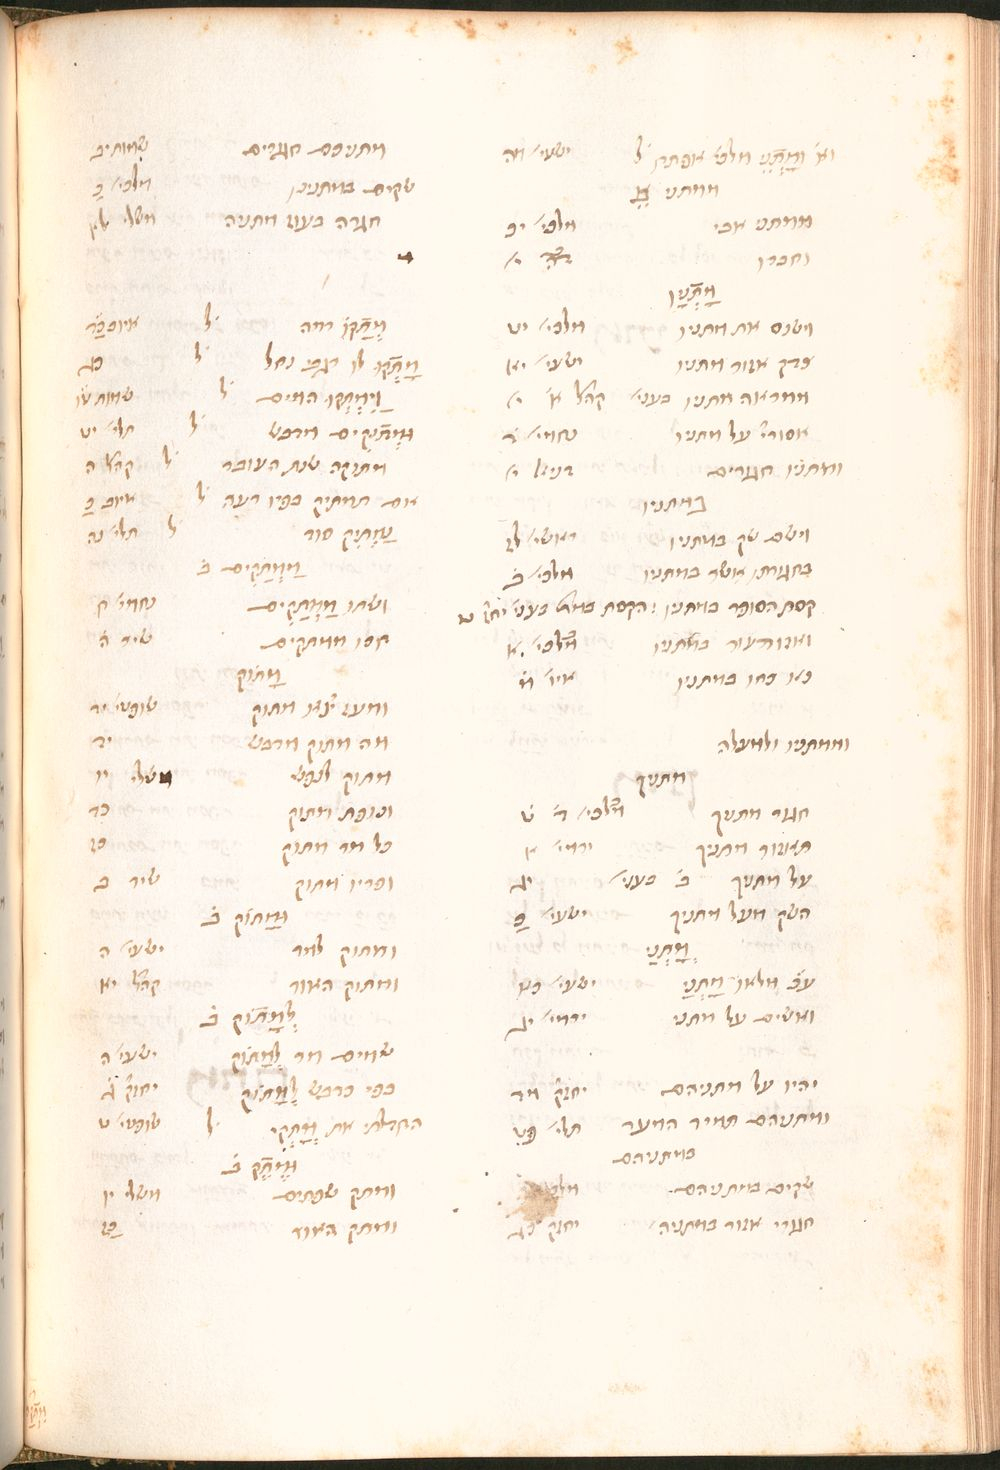 וא׳ וּמָתְנֵי מלכי׳ אפתח ל׳ ישעי׳ מה
ממתני
ממתני אבי מלכי׳ יב
וחברו
מָתְנָיו
וישנס את מתניו מלכי׳ יח
צדק אזור מתניו ישעי׳ יא
וממראה מתניו בעני׳ א׳
אסורי׳ על מתניו נחמי׳ ד
ומתניו חגרים דניאל י
במתניו
וישם שק במתניו ראשי׳ לז
בחגרתו אשר במתניו מלכי׳ ב
קסת הסופר במתניו הקסת במת׳ יחז׳ ט
ואזור עור במתניו מלכי׳ א
כחו במתניו איו׳ מ
וממתניו ולמעלה
מתניך
חגר מתניך מלכי׳ ד׳ ט
תאזור מתניך ירמי׳ א
על מתניך ב׳ בעני׳ יג
השק מעל מתניך ישעי׳ כ
מָתְנַי
מלאו מָתְנַי ישעי׳ כא
ואשים על מתני ירמי׳ יג
יהיו על מתניהם יחזק׳ מד
ומתניהם תמיד המעד תלי׳ סט
במתניהם
שקים במתניהם מלכי׳
חגורי אזור במתניה׳ יחזק׳ כג
מתניכם חגרים שמות יב
שקים במתנינו מלכי׳ כ
חגרה בעוז מתניה משלי לא
מְתָקוֹ רמה ל׳ איוב כד
מָתְקוּ לו רגבי נחל ל׳ כא
וַיִמְתְקוּ המים ל׳ שמות טו
וּמְתוּקִים מדבש ל׳ תלי׳ יט
מתוקה שנת העובד ל׳ קהל׳ ה
אם תמתיק בפיו רעה ל׳ איוב כ
נַמְתִיק סוד ל׳ תלי׳ נה
מַמְתַקִים ב׳
ושתו מַמְתַקִים נחמי׳ ח
חכו ממתקים שיר ה
מָתוֹק
ומעז יצא מתוק שופטי׳ יד
מה מתוק מדבש יד
מתוק לנפש משלי יו
ונופת מתוק כד
כל מר מתוק כז
ופריו מתוק שיר ב
וּמָתוֹק ב׳
ומתוק למר ישעי׳ ה
ומתוק האור קהל׳ יא
לְמָתוֹק ב׳
שמים מר לְמָתוֹק ישעי׳ ה
בפי כדבש לְמָתוֹק יחזק׳ ג
החדלתי את מָתְקִי ל׳ שופטי׳ ט
וּמֶתֶק ב׳
ומתק שפתים משלי יו
ומתק האור כז